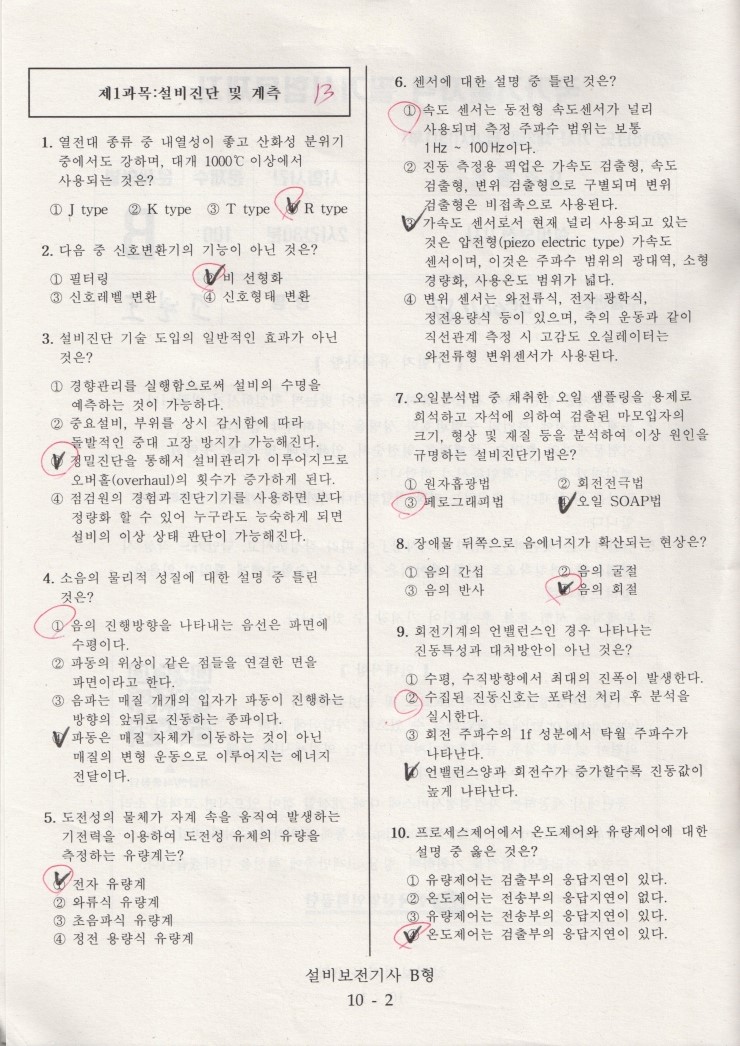 제1과목:설비진단 및 계측 13
1. 열전대 종류 중 내열성이 좋고 산화성 분위기
중에서도 강하며, 대개 1000℃ 이상에서
사용되는 것은?
① J type ② K type ③ T type ④ R type
2. 다음 중 신호변환기의 기능이 아닌 것은?
① 필터링 ② 비 선형화
③ 신호레벨 변환 ④ 신호형태 변환
3. 설비진단 기술 도입의 일반적인 효과가 아닌
것은?
① 경향관리를 실행함으로써 설비의 수명을
예측하는 것이 가능하다.
② 중요설비, 부위를 상시 감시함에 따라
돌발적인 중대 고장 방지가 가능해진다.
③ 정밀진단을 통해서 설비관리가 이루어지므로
오버홀(overhaul)의 횟수가 증가하게 된다.
④ 점검원의 경험과 진단기기를 사용하면 보다
정량화 할 수 있어 누구라도 능숙하게 되면
설비의 이상 상태 판단이 가능해진다.
4. 소음의 물리적 성질에 대한 설명 중 틀린
것은?
① 음의 진행방향을 나타내는 음선은 파면에
수평이다.
② 파동의 위상이 같은 점들을 연결한 면을
파면이라고 한다.
③ 음파는 매질 개개의 입자가 파동이 진행하는
방향의 앞뒤로 진동하는 종파이다.
④ 파동은 매질 자체가 이동하는 것이 아닌
매질의 변형 운동으로 이루어지는 에너지
전달이다.
5. 도전성의 물체가 자계 속을 움직여 발생하는
기전력을 이용하여 도전성 유체의 유량을
측정하는 유량계는?
① 전자 유량계
② 와류식 유량계
③ 초음파식 유량계
④ 정전 용량식 유량계
6. 센서에 대한 설명 중 틀린 것은?
① 속도 센서는 동전형 속도센서가 널리
사용되며 측정 주파수 범위는 보통
1 Hz ~ 100 Hz이다.
② 진동 측정용 픽업은 가속도 검출형, 속도
검출형, 변위 검출형으로 구별되며 변위
검출형은 비접촉으로 사용된다.
③ 가속도 센서로서 현재 널리 사용되고 있는
것은 압전형(piezo electric type) 가속도
센서이며, 이것은 주파수 범위의 광대역, 소형
경량화, 사용온도 범위가 넓다.
④ 변위 센서는 와전류식, 전자 광학식,
정전용량식 등이 있으며, 축의 운동과 같이
직선관계 측정 시 고감도 오실레이터는
와전류형 변위센서가 사용된다.
7. 오일분석법 중 채취한 오일 샘플링을 용제로
희석하고 자석에 의하여 검출된 마모입자의
크기, 형상 및 재질 등을 분석하여 이상 원인을
규명하는 설비진단기법은?
① 원자흡광법 ② 회전전극법
③ 페로그래피법 ④ 오일 SOAP법
8. 장애물 뒤쪽으로 음에너지가 확산되는 현상은?
① 음의 간섭 ② 음의 굴절
③ 음의 반사 ④ 음의 회절
9. 회전기계의 언밸런스인 경우 나타나는
진동특성과 대처방안이 아닌 것은?
① 수평, 수직방향에서 최대의 진폭이 발생한다.
② 수집된 진동신호는 포락선 처리 후 분석을
실시한다.
③ 회전 주파수의 1f 성분에서 탁월 주파수가
나타난다.
④ 언밸런스양과 회전수가 증가할수록 진동값이
높게 나타난다.
10. 프로세스제어에서 온도제어와 유량제어에 대한
설명 중 옳은 것은?
① 유량제어는 검출부의 응답지연이 있다.
② 온도제어는 전송부의 응답지연이 없다.
③ 유량제어는 전송부의 응답지연이 있다.
④ 온도제어는 검출부의 응답지연이 있다.
설비보전기사 B형
10 - 2